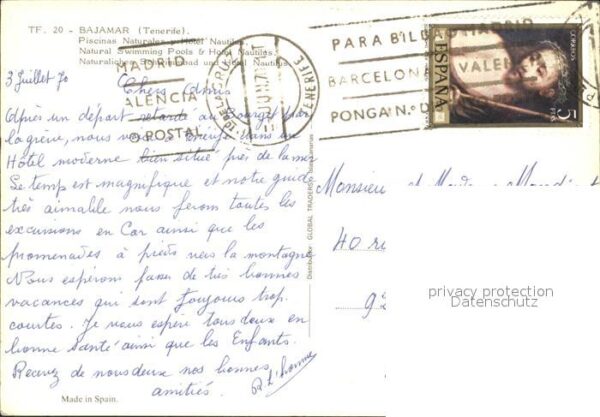 TF. 20 - BAJAMAR (Tenerife).
Piscinas Naturales y Hotel Nautilus
Natural Swimming Pools & Hotel Nautilus
und Hotel Nautilus
MADRID
VALENCIA
POSTAL
TENERIFE
PARA BILBAO MADRID
BARCELONA VALEN
PONGA N.º D
ESPAÑA
CORREOS
5
PTAS
3 Juillet 70
Chers Amis
Après un départ retardé au Bourget par
la grève, nous nous dans un
Hôtel moderne bien situé près de la mer
Le temps est magnifique et notre guide
très aimable nous ferons toutes les
excursions en Car ainsi que les
promenades à pieds vers la montagne
Nous espérons passer de très bonnes
vacances qui sont toujours trop
courtes. Je vous espère tous deux en
bonne santé ainsi que les Enfants.
Recevez de nous deux nos bonnes
amitiés.
Monsieur et Madame
40 r
92
Distribuidor GLOBAL TRADERS
Made in Spain.
privacy protection
Datenschutz